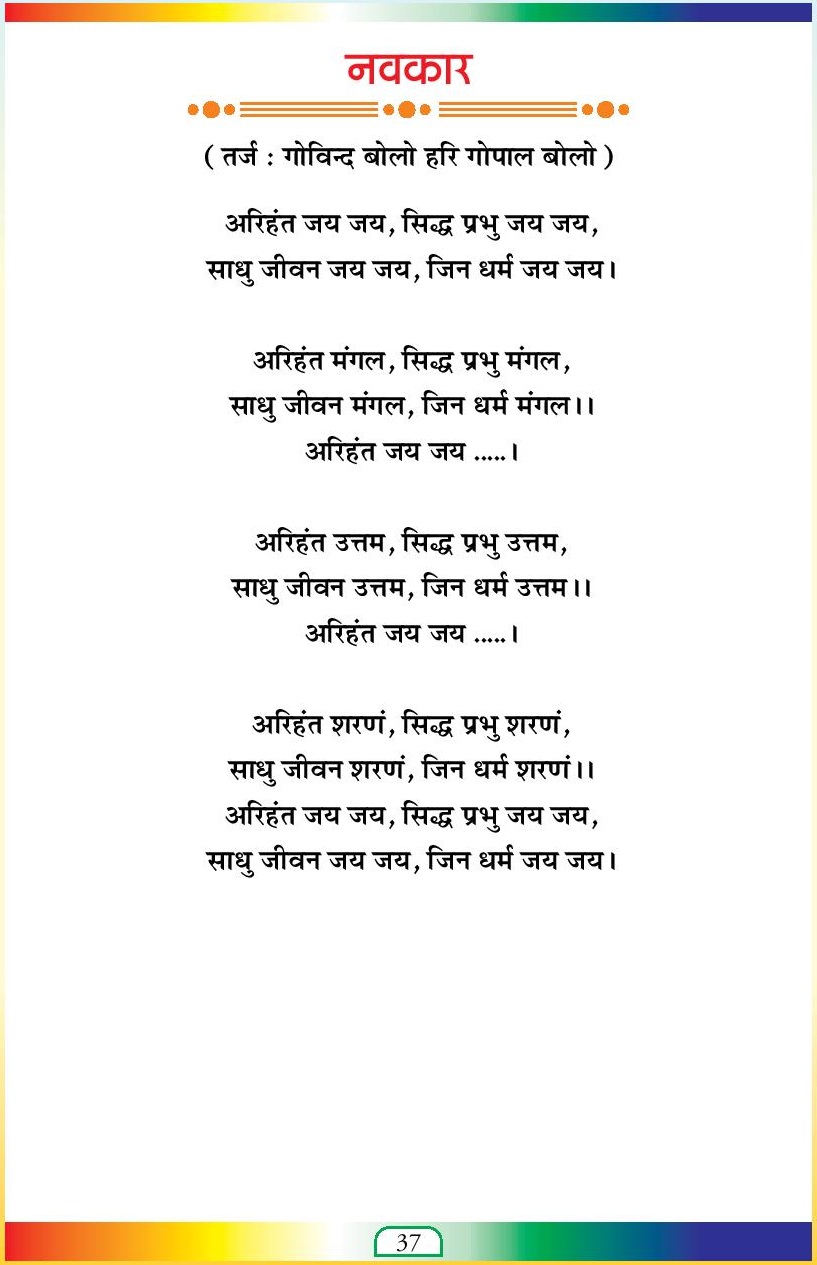 नवकार
( तर्ज : गोविन्द बोलो हरि गोपाल बोलो )
अरिहंत जय जय, सिद्ध प्रभु जय जय,
साधु जीवन जय जय, जिन धर्म जय जय।
अरिहंत मंगल, सिद्ध प्रभु मंगल,
साधु जीवन मंगल, जिन धर्म मंगल।।
अरिहंत जय जय .....।
अरिहंत उत्तम, सिद्ध प्रभु उत्तम,
साधु जीवन उत्तम, जिन धर्म उत्तम।।
अरिहंत जय जय .....।
अरिहंत शरणं, सिद्ध प्रभु शरणं,
साधु जीवन शरणं, जिन धर्म शरणं।।
अरिहंत जय जय, सिद्ध प्रभु जय जय,
साधु जीवन जय जय, जिन धर्म जय जय।
37